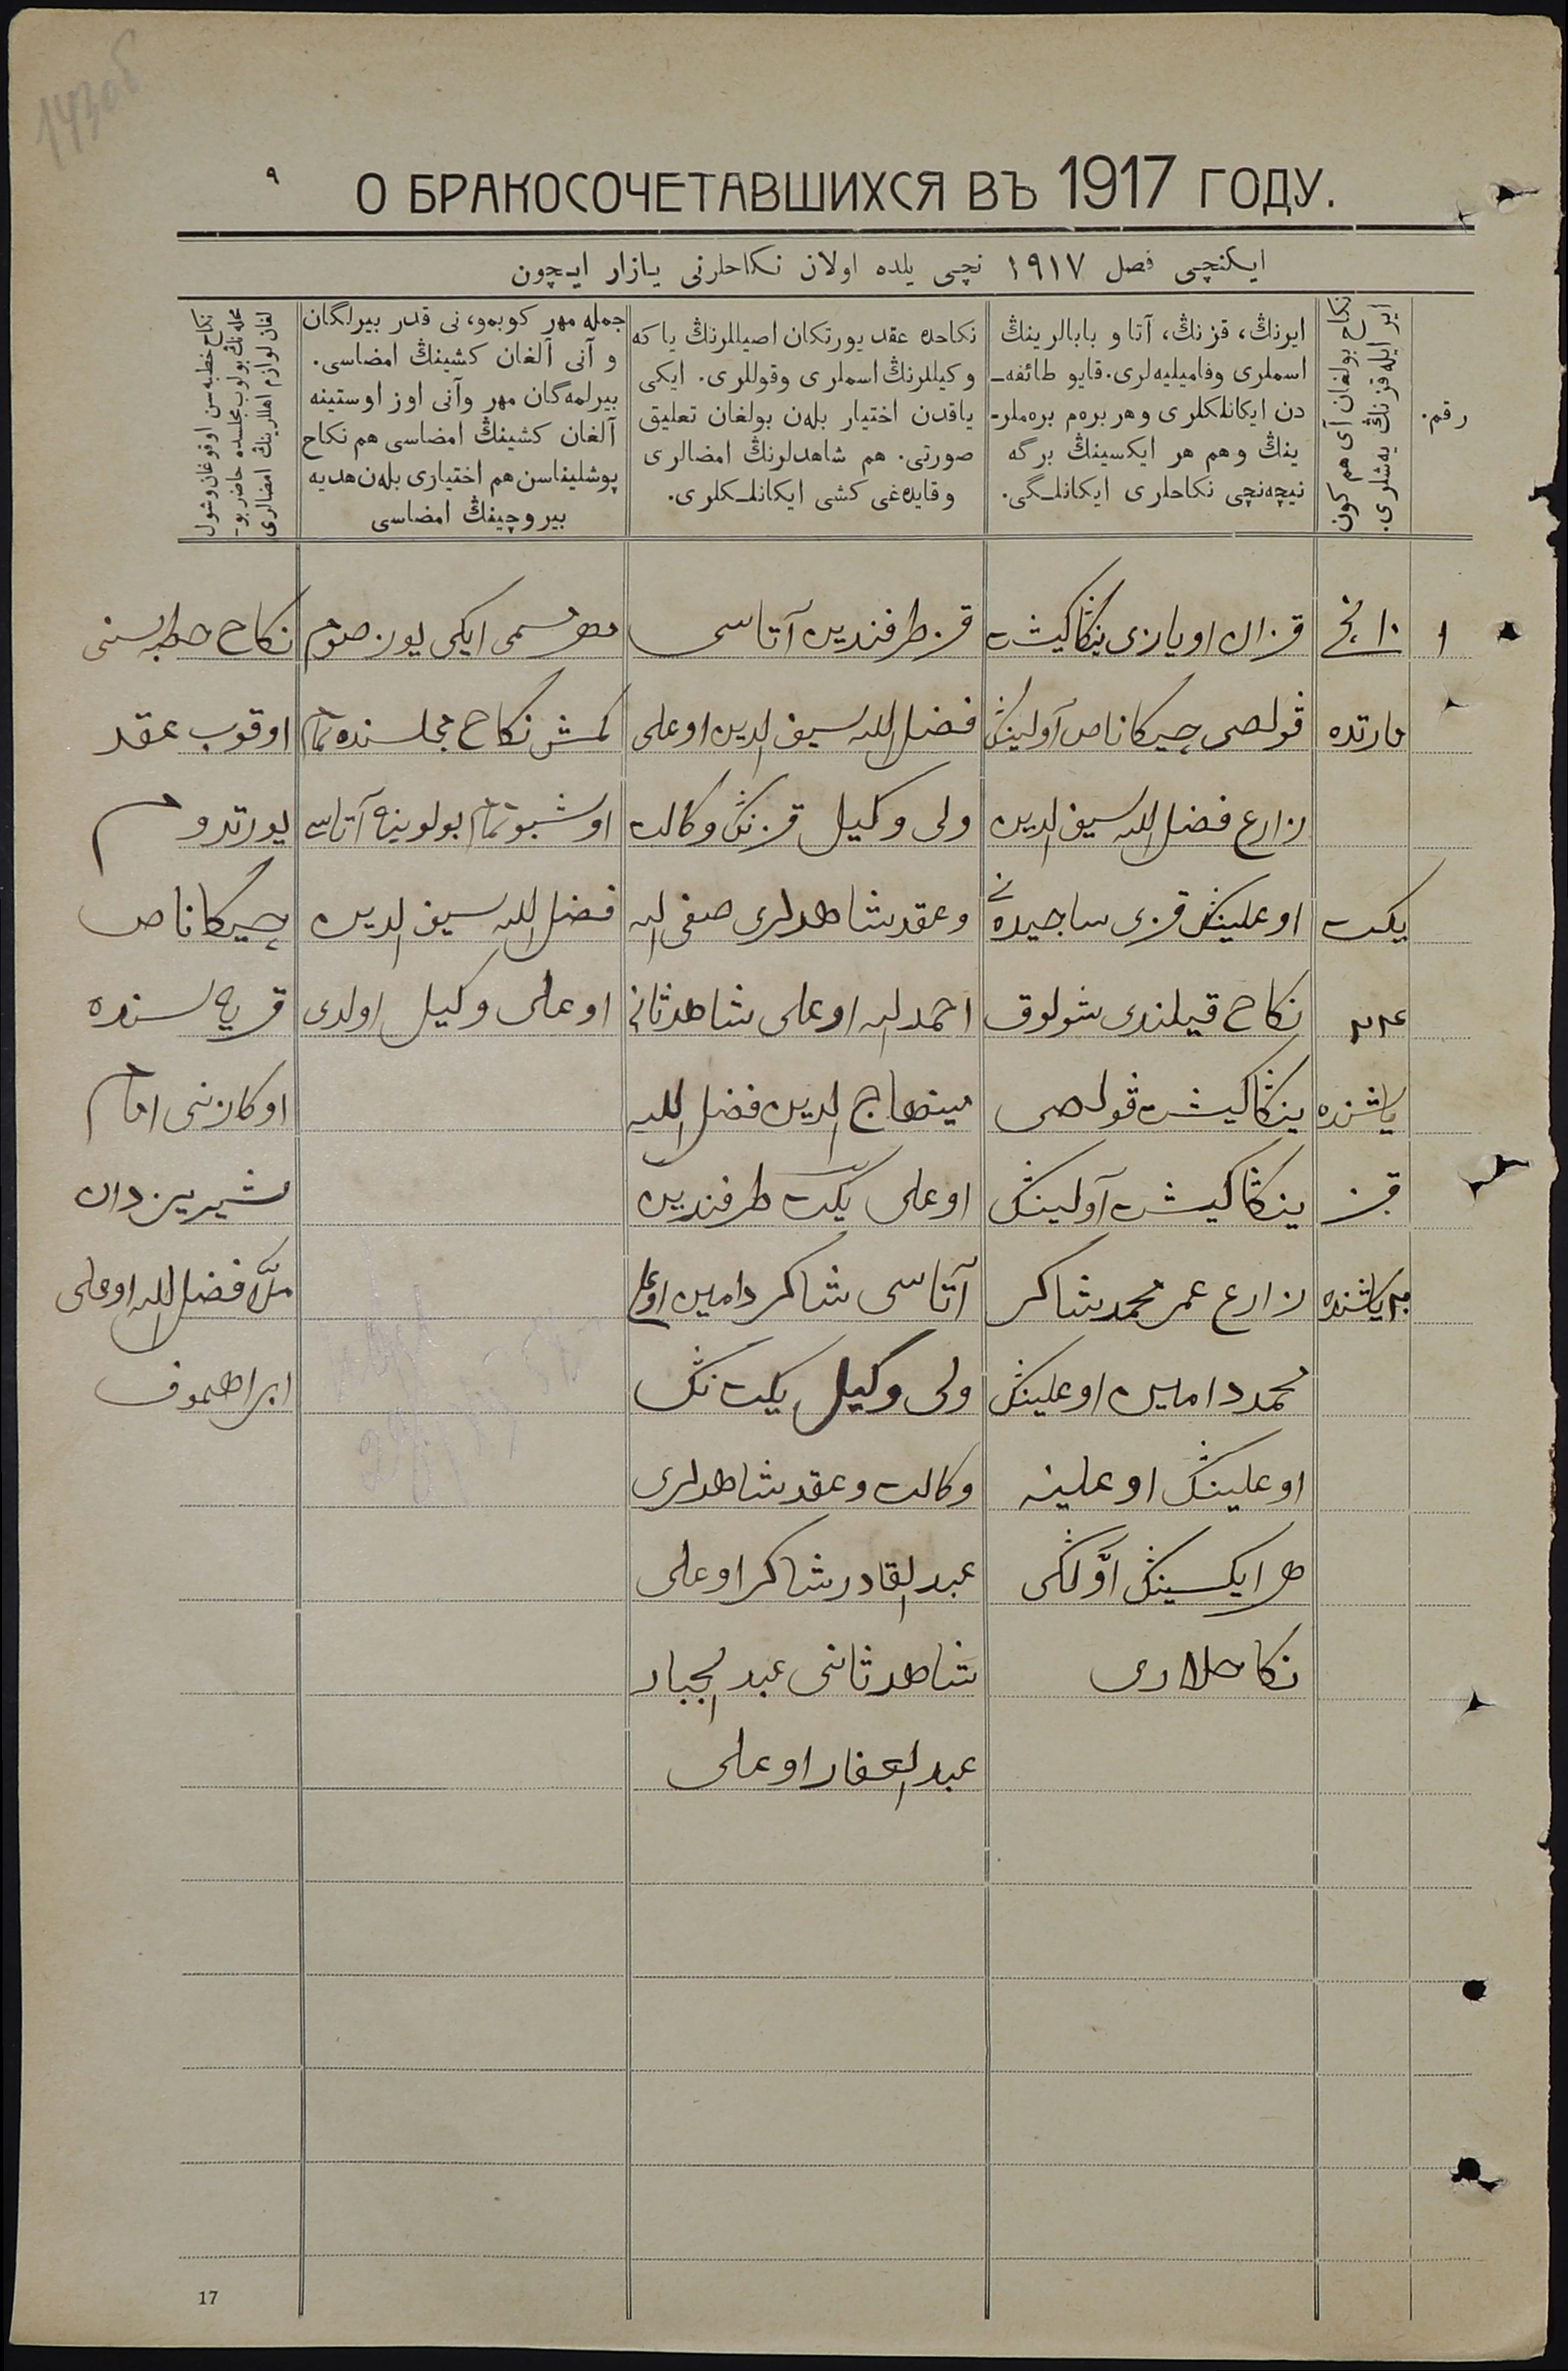 143об
۹
О БРАКОСОЧЕТАВШИХСЯ ВЪ 1917 ГОДУ.
ایکنچی فصل ۱۹۱۷ نچی یلده اولان نکاحلرنی یازار ایچون
رقم.
نکاح بولغان آی هم کون
ایر ایله قزنڭ یه‌شلری.
ایرنڭ، قزنڭ، آتا و بابالرینڭ
اسملری وفامیلیه‌لری. قایو طائفه‌ـ
دن ایکانلکلری و هر بره‌م بره‌ملرـ
ینڭ و هم هر ایکسینڭ برگه
نیچه‌نچی نکاحلری ایکانلـگی.
نکاحده عقد یورتکان اصیللرنڭ یا که
وکیللرنڭ اسملری وقوللری. ایکی
یاقدن اختیار بله‌ن بولغان تعلیق
صورتی. هم شاهدلرنڭ امضالری
و قایده‌غی کشی ایکانلـکلری.
جمله مهر کوبمو، نی قدر بیرلگان
و آنی آلغان کشینڭ امضاسی.
بیرلمه‌گان مهر وآنی اوز اوستینه
آلغان کشینڭ امضاسی هم نکاح
پوشلیناسن هم اختیاری بله‌ن هدیه
بیروچینڭ امضاسی
نکاح خطبه‌سن اوقوغان وشول
محله‌نڭ بولوب مجلسده حاضر بوـ
لغان لوازم اهللرینڭ امضالری
۱
۱۰ نچی
مارتده
یکت
۲۴
یاشنده
قز
یاشنده
قزان اویازی ینکاکیشت
قولصی چیکاناص آولینڭ
زارع فضل الله سیف الدین
اوغلینڭ قزی ساجیده‌نی
نکاح قیلندی شولوق
ینکاکیشت قولصی
ینکاکیشت آولینڭ
زارع عمر محمد شاکر
محمد دامین اوغلینڭ
اوغلینڭ اوغلینه
هر ایکسینڭ اوّلگی
نکاحلاری
قز طرفندین آتاسی
فضل الله سیف الدین اوغلی
ولی وکیل قزنڭ وکالت
وعقد شاهدلری صفی الله
احمد الله اوغلی شاهد ثانی
مینهاج الدین فضل الله
اوغلی یکت طرفندین
آتاسی شاکر دامین اوغلی
ولی وکیل یکت نڭ
وکالت وعقد شاهدلری
عبد القادر شاکر اوغلی
شاهد ثانی عبد الجبار
عبد الغفار اوغلی
مهر مسمی ایکی یوز صوم
کمش نکاح مجلسنده تمام
اوشبو تمام بولوینه آتاسی
فضل الله سیف الدین
اوغلی وکیل اولدی
نکاح خطبه‌سنی
اوقوب عقد
یورتدوم
چیکاناص
قریه‌سنده
اوکازنی امام
شیریزدان
ملّا فضل الله اوغلی
ابراهیموف
17